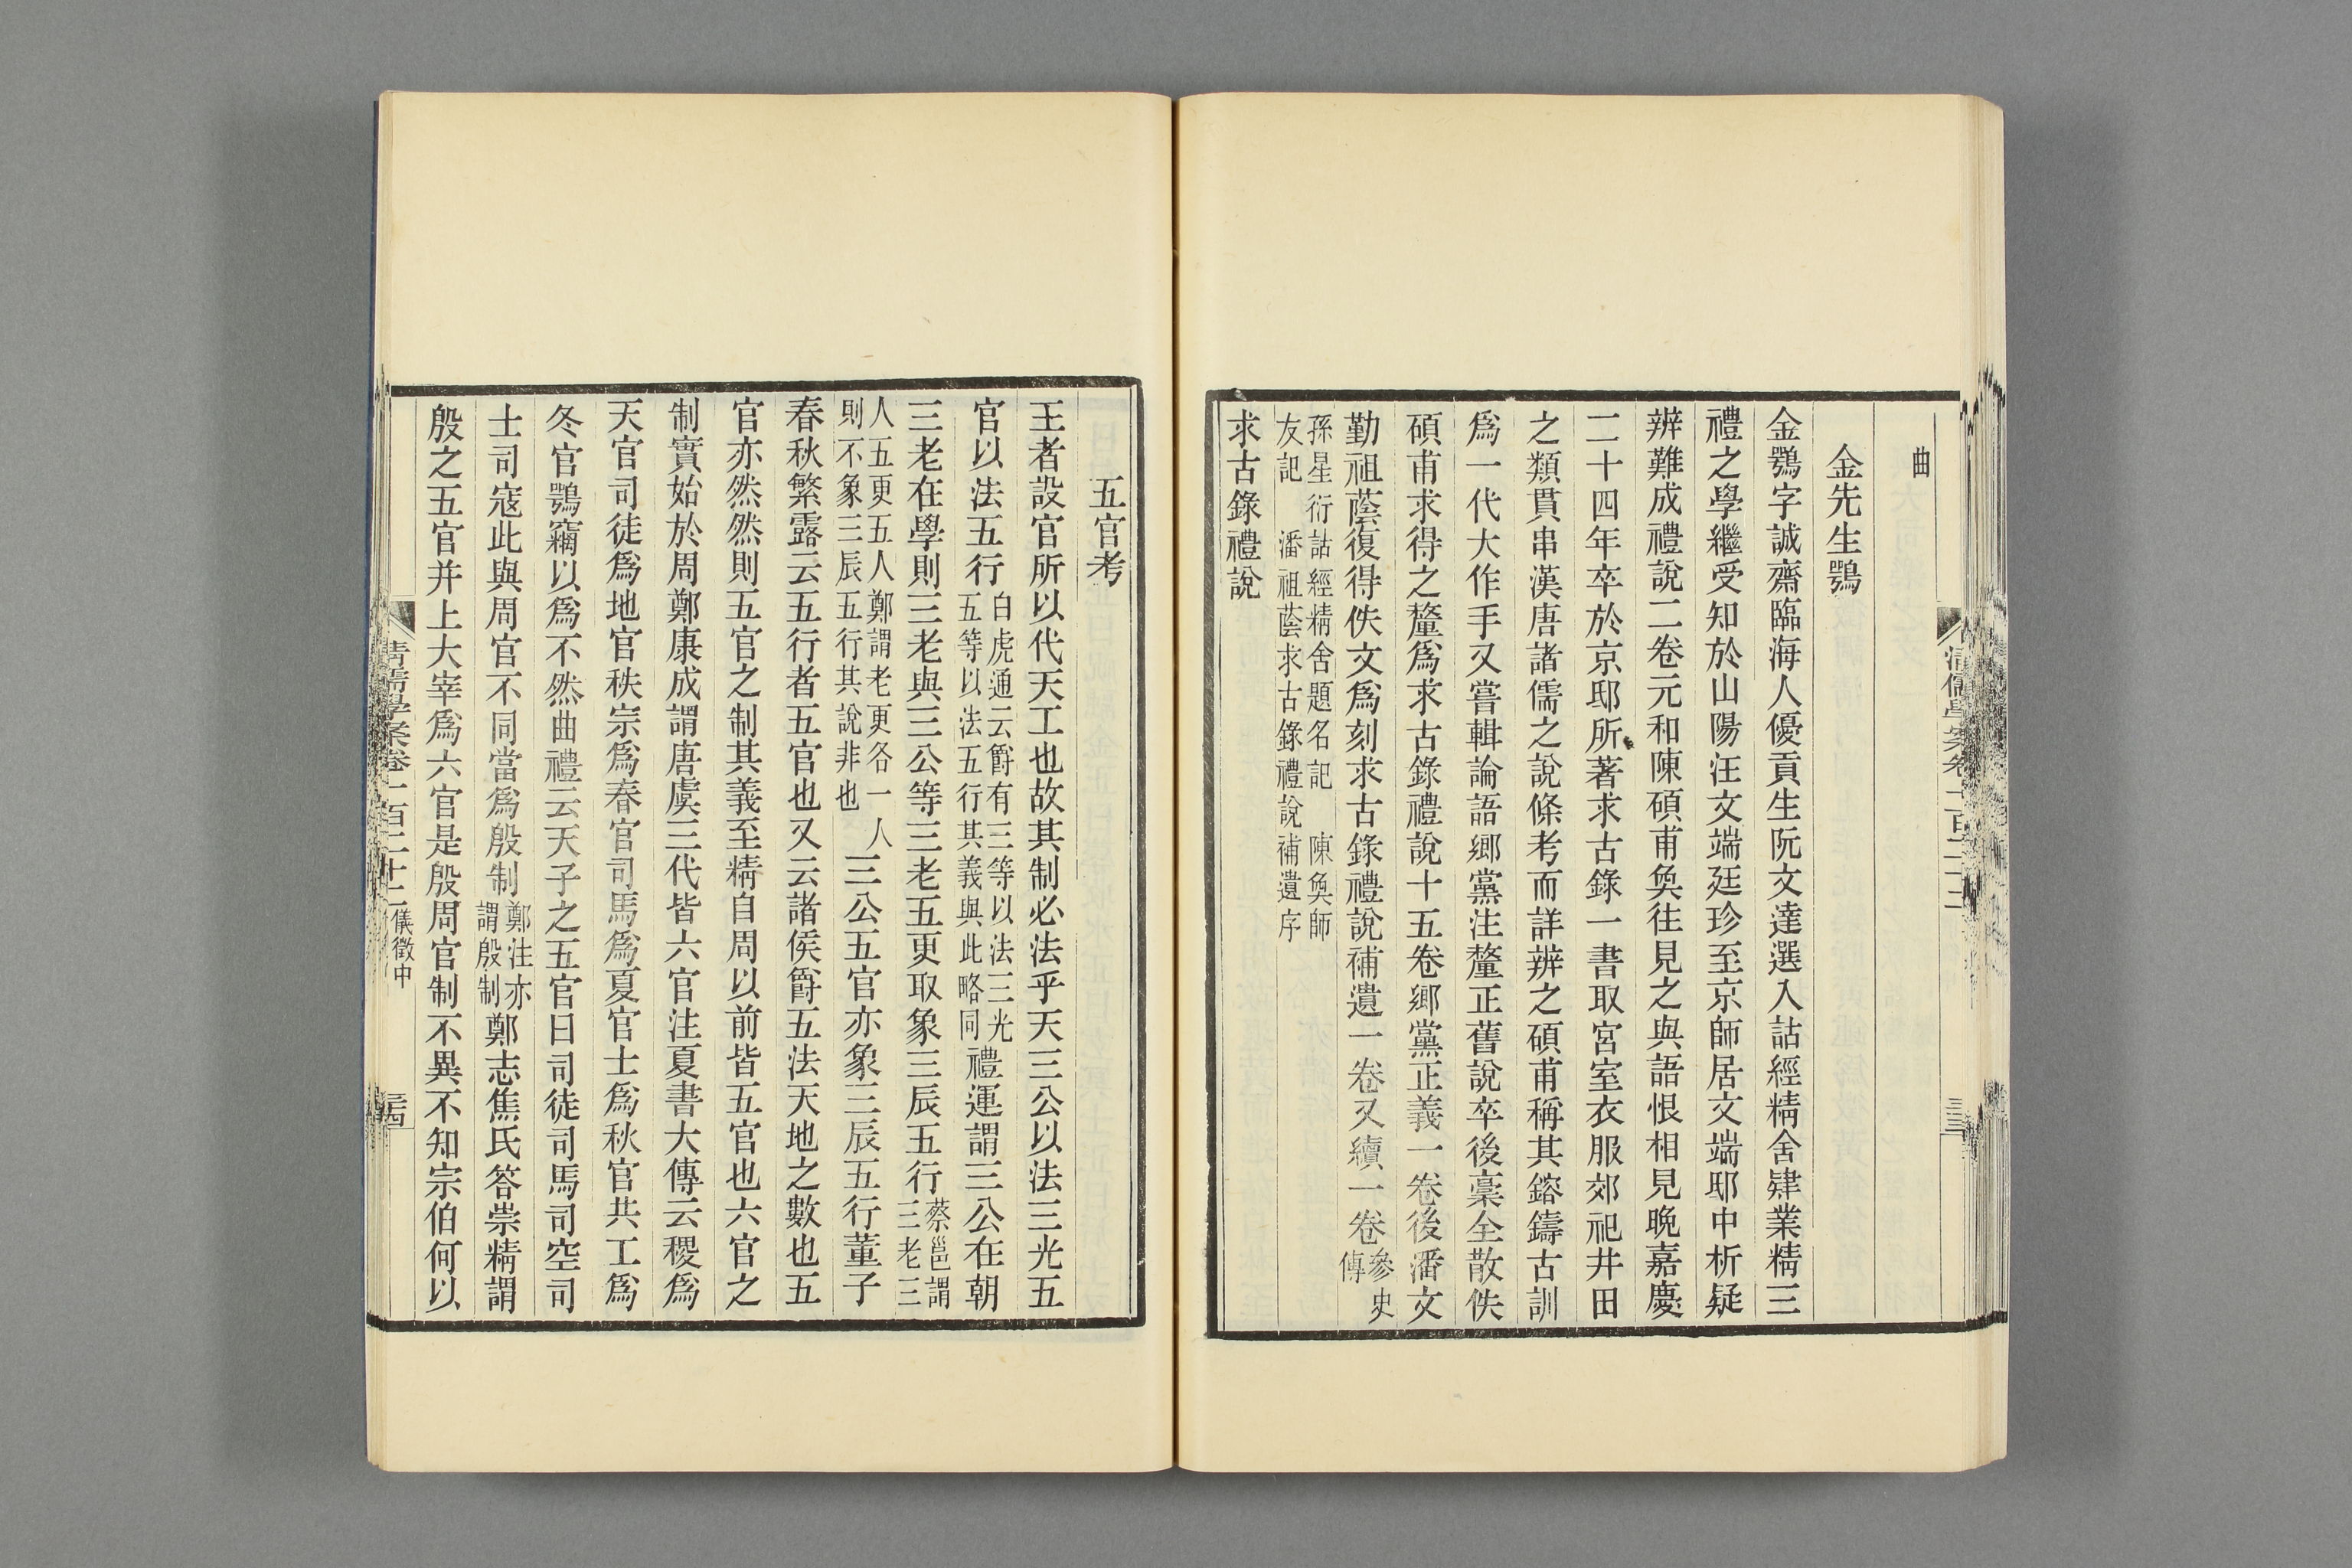 曲
金先生鶚
金鶚字誠齋臨海人優貢生阮文達選入詁經精舍肄業精三
禮之學繼受知於山陽汪文端廷珍至京師居文端邸中析疑
辨難成禮說二卷元和陳碩甫奐往見之與語恨相見晚嘉慶
二十四年卒於京邸所著求古錄一書取宮室衣服郊祀井田
之類貫串漢唐諸儒之說條考而詳辨之碩甫稱其鎔鑄古訓
爲一代大作手又嘗輯論語鄉黨注釐正舊說卒後稾全散佚
碩甫求得之釐爲求古錄禮說十五卷鄉黨正義一卷後潘文
勤祖蔭復得佚文爲刻求古錄禮說補遺一卷又續一卷參史
傳
孫星衍詁經精舍題名記 陳奐師
友記 潘祖蔭求古錄禮說補遺序
求古錄禮說
清儒學案卷一百二十二
三三
五官考
王者設官所以代天工也故其制必法乎天三公以法三光五
官以法五行白虎通云爵有三等以法三光
五等以法五行其義與此略同禮運謂三公在朝
三老在學則三老與三公等三老五更取象三辰五行蔡邕謂
三老三
人五更五人鄭謂老更各一人
則不象三辰五行其說非也三公五官亦象三辰五行董子
春秋繁露云五行者五官也又云諸侯爵五法天地之數也五
官亦然然則五官之制其義至精自周以前皆五官也六官之
制實始於周鄭康成謂唐虞三代皆六官注夏書大傳云稷爲
天官司徒爲地官秩宗爲春官司馬爲夏官士爲秋官共工爲
冬官鶚竊以爲不然曲禮云天子之五官曰司徒司馬司空司
士司寇此與周官不同當爲殷制鄭注亦
謂殷制鄭志焦氏答崇精謂
殷之五官并上大宰爲六官是殷周官制不異不知宗伯何以
清儒學案卷一百二十二儀徵中
三四